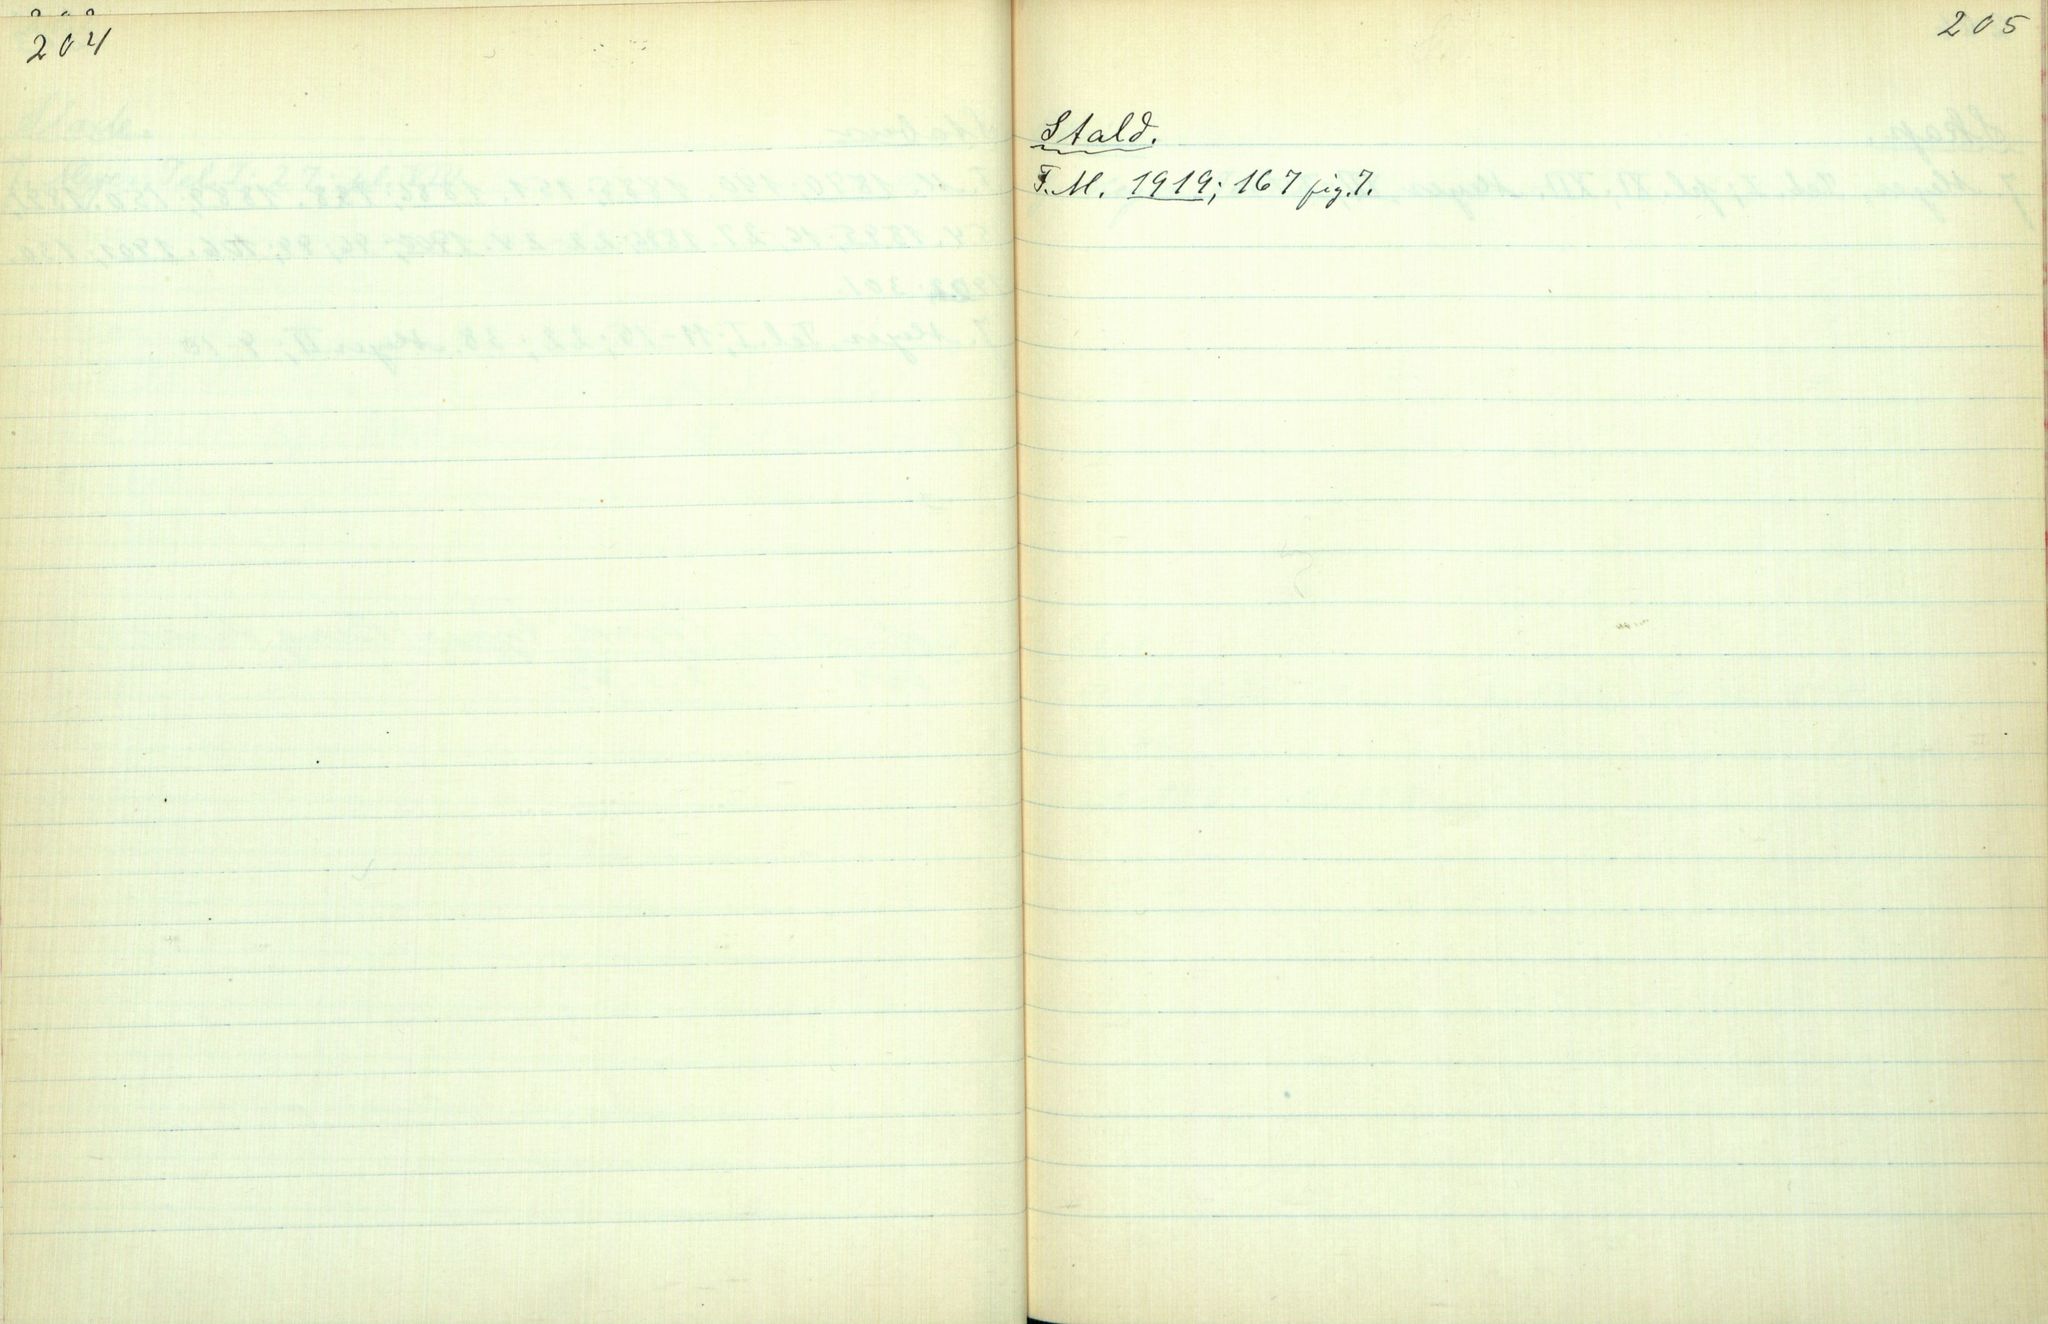 204
205
Stald.
F. M. 1919; 167 fig. 7.